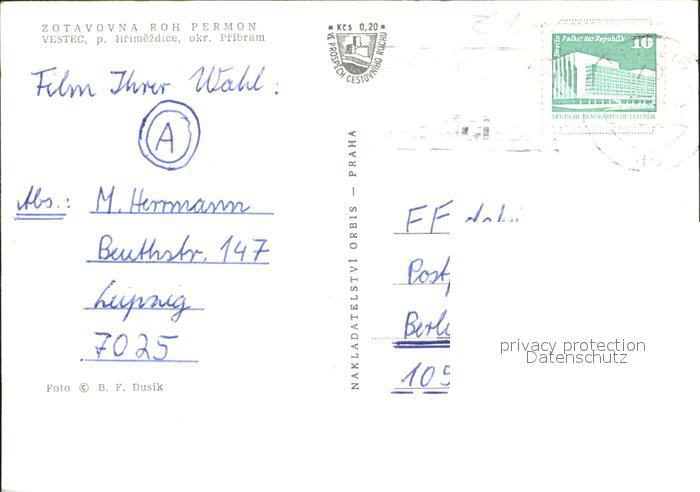 ZOTAVOVNA ROH PERMON
VESTEC, p. Hříměždice, okr. Příbram
Kčs 0,20
VE PROSPĚCH CESTOVNÍHO RUCHU
Berlin Palast der Republik
10
DEUTSCHE DEMOKRATISCHE REPUBLIK
Film Ihrer Wahl:
A
Abs.: M. Herrmann
Beuthstr. 147
Leipzig
7025
Foto © B. F. Dusík
NAKLADATELSTVÍ ORBIS — PRAHA
FF
Post
Berli
105
privacy protection
Datenschutz